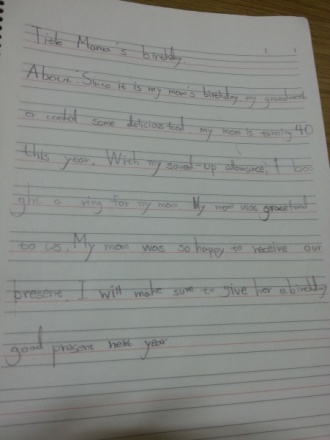 Title Mama's birthday
About: Since it is my mom's birthday my grandmom
cooked some delicious food my mom is turning 40
this year. With my saved-up allowance, I bou
ght a ring for my mom My mom was
to us. My mom was so happy to receive our
present. I will make sure to give her a birthday
good present next year